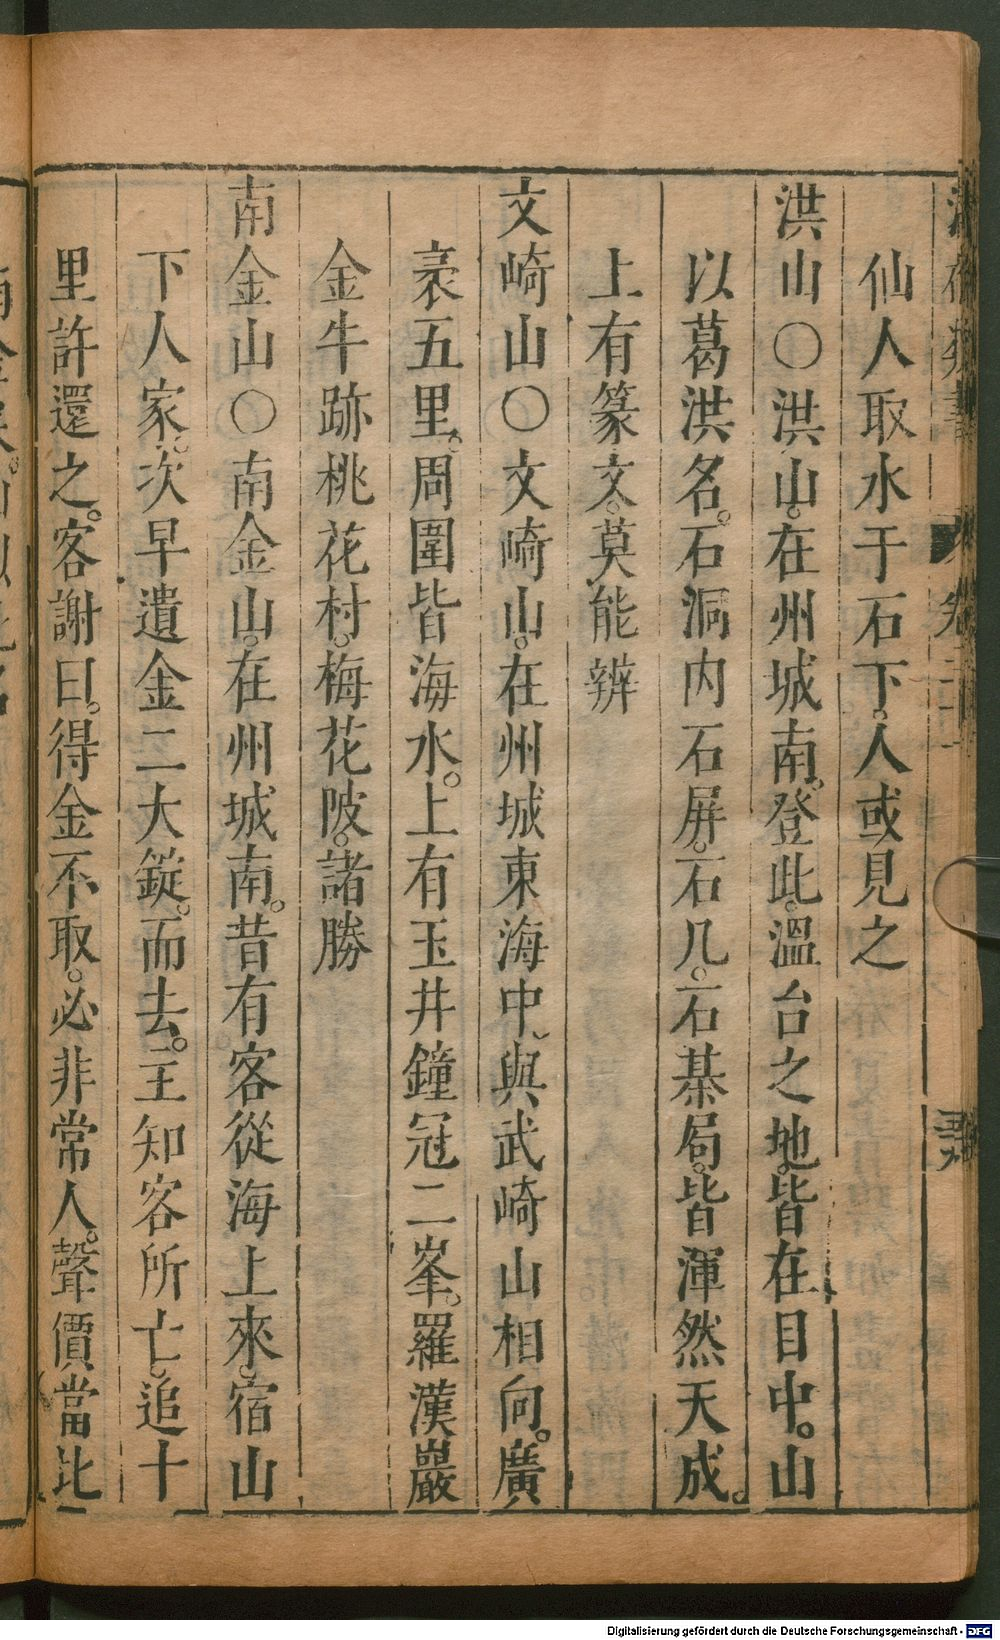 仙人取水于石下。人或見之
洪山○洪山。在州城南。登此。溫台之地。皆在目中。山
以葛洪名。石洞內石屏。石几。石棊局。皆渾然天成。
上有篆文。莫能辨
文崎山○文崎山。在州城東海中。與武崎山相向。廣
袤五里。周圍皆海水。上有玉井鐘冠二峯。羅漢巖
金牛跡桃花村。梅花陂。諸勝
南金山○南金山。在州城南。昔有客從海上來。宿山
下人家。次早遺金二大錠。而去。主知客所亡。追十
里許還之。客謝曰。得金不取。必非常人。聲價當比
Digitalisierung gefördert durch die Deutsche Forschungsgemeinschaft - DFG